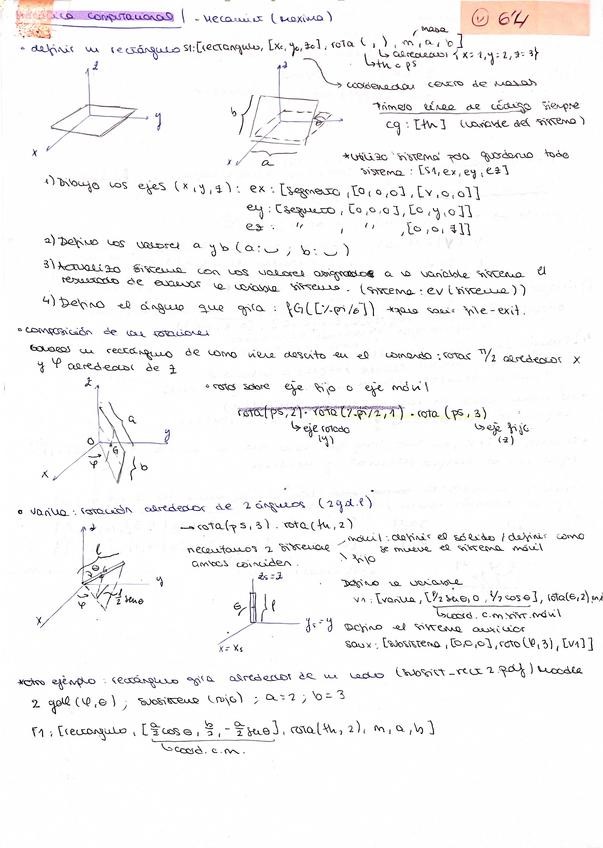 computacional | - Mecanica (maxima)
64
masa
• definir un rectángulo S1:[rectangulo, [x₀, y₀, z₀], rota( , ), m, a, b]
↳ alrededor {x=1, y=2, z=3}
↳ th o ps
→ coordenadas centro de masas
z
y
x
z
b
a
θ
x
Primera línea de código siempre
cg: [th] (variable del sistema)
*Utilizo 'sistema' para guardarlo todo
sistema: [s1, ex, ey, ez]
1) Dibujo los ejes (x, y, z): ex: [segmento, [0,0,0], [v,0,0]]
ey: [segmento, [0,0,0], [0,y,0]]
ez: " , " , [0,0,z]]
2) Defino los valores a y b (a: ; b: )
3) Actualizo sistema con los valores asignados a la variable sistema el
resultado de evaluar la variable sistema. (sistema: ev(sistema))
4) Defino el ángulo que gira: fG([%pi/6]) *para salir file-exit.
• composición de las rotaciones
un rectángulo de como viene descrito en el comando: rotar π/2 alrededor x
y φ alrededor de z
z
O
y
x
φ
G
a
b
• rotar sobre eje fijo o eje móvil
rota(ps,2) · rota(%pi/2,1) · rota(ps,3)
↳ eje rotado
(y)
↳ eje fijo
(z)
• Varilla: rotación alrededor de 2 ángulos (2 g.d.l)
→ rota(ps,3) · rota(th,2)
necesitamos 2 sistemas
móvil: definir el sólido / definir como
se mueve el sistema móvil
fijo
ambos coinciden.
z
l
θ
G
y
x
φ
½ senθ
z_s = z
θ
l
y_s = y
x = x_s
Defino la variable
v1: [varilla, [l/2 senθ, 0, l/2 cosθ], rota(θ,2)
↳ coord. c.m. sist. móvil
Defino el sistema auxiliar
saux: [subsistema, [0,0,0], rota(φ,3), [v1]]
*Otro ejemplo: rectángulo gira alrededor de un lado (subsist_rect2.pdf) Moodle
2 gdl (φ, θ); subsistema (rojo); a=2; b=3
r1: [rectangulo, [a/2 cosθ, b/2, -a/2 senθ], rota(th,2), m, a, b]
↳ coord. c.m.